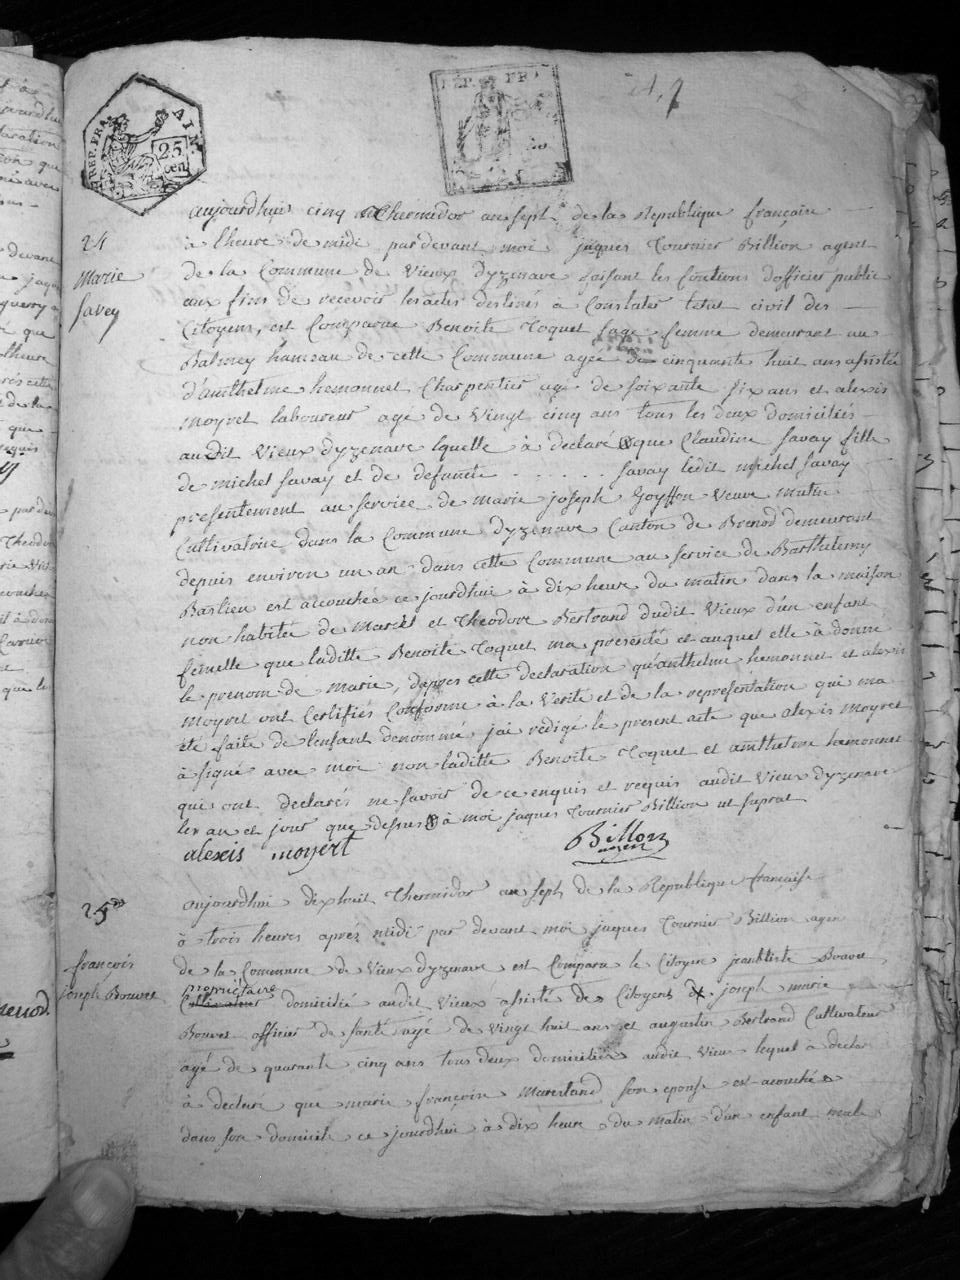 REP. FRA. AIN.
25
cen
REP. FRA
24
Marie
Savey
aujourdhui cinq Thermidor an sept de la Republique françoise
à lheure de midi pardevant moi jaques Tournier Billion agent
de la Commune de Vieux dyzenave faisant les fontions dofficier public
aux fins de recevoir les actes destinés à Constater letat civil des
Citoyens, est Comparue Benoite Toquet sage femme demeurant au
Balmey hameau de cette Commune agée de cinquante huit ans assistée
d'anthelme hemonnet Charpentier agé de soixante six ans et alexis
moyret laboureur agé de Vingt cinq ans tous les deux domiciliés
audit Vieux dyzenave lquelle à declaré que Claudine Savay fille
de michel Savay et de defunte . . . . Savay ledit michel Savay
presentement au service de marie joseph Goyffon veuve mutin
Cultivatrice dans la Commune dyzenave Canton de Brenod demeurant
depuis environ un an dans cette Commune au service de Barthelemy
Baslien est acouchée ce jourdhui à dix heure du matin dans la maison
non habitée de Marcel et Theodore Bertrand dudit Vieux d'un enfant
femelle que laditte Benoite Toquet ma presenté et auquel elle à donné
le prenom de marie, dapres cette declaration qu'anthelme hemonnet et alexis
moyret ont Certifiés Conforme à la Verité et de la representation qui ma
été faite de lenfant denommé jai redigé le present acte que alexis moyret
à signé avec moi non laditte Benoite Toquet et anthelme hemonnet
qui ont declarés ne savoir de ce enquis et requis audit Vieux dyzenave
les an et jour que dessus à moi jaques Tournier Billion ut suprat
alexis moyert
Billion
agent
25
françois
joseph Bouvet
aujourdhui dixhuit Thermidor an sept de la Republique françoise
à trois heures apres midi par devant moi jaques Tournier Billion agen
de la Commune de Vieux dyzenave est Compara le Citoyen jeanbtiste Bouvet
propriétaire
Cultivateur domicilié audit Vieux assisté de Citoyens joseph marie
Bouvet officier de santé agé de Vingt huit ans et augustin Bertrand Cultivateur
agé de quarante cinq ans tous deux domiciliés audit Vieux lequel à declar
à declare que marie françoise son epouse est acouchée
dans son domicile ce jourdhui à dix heure du matin d'un enfant male